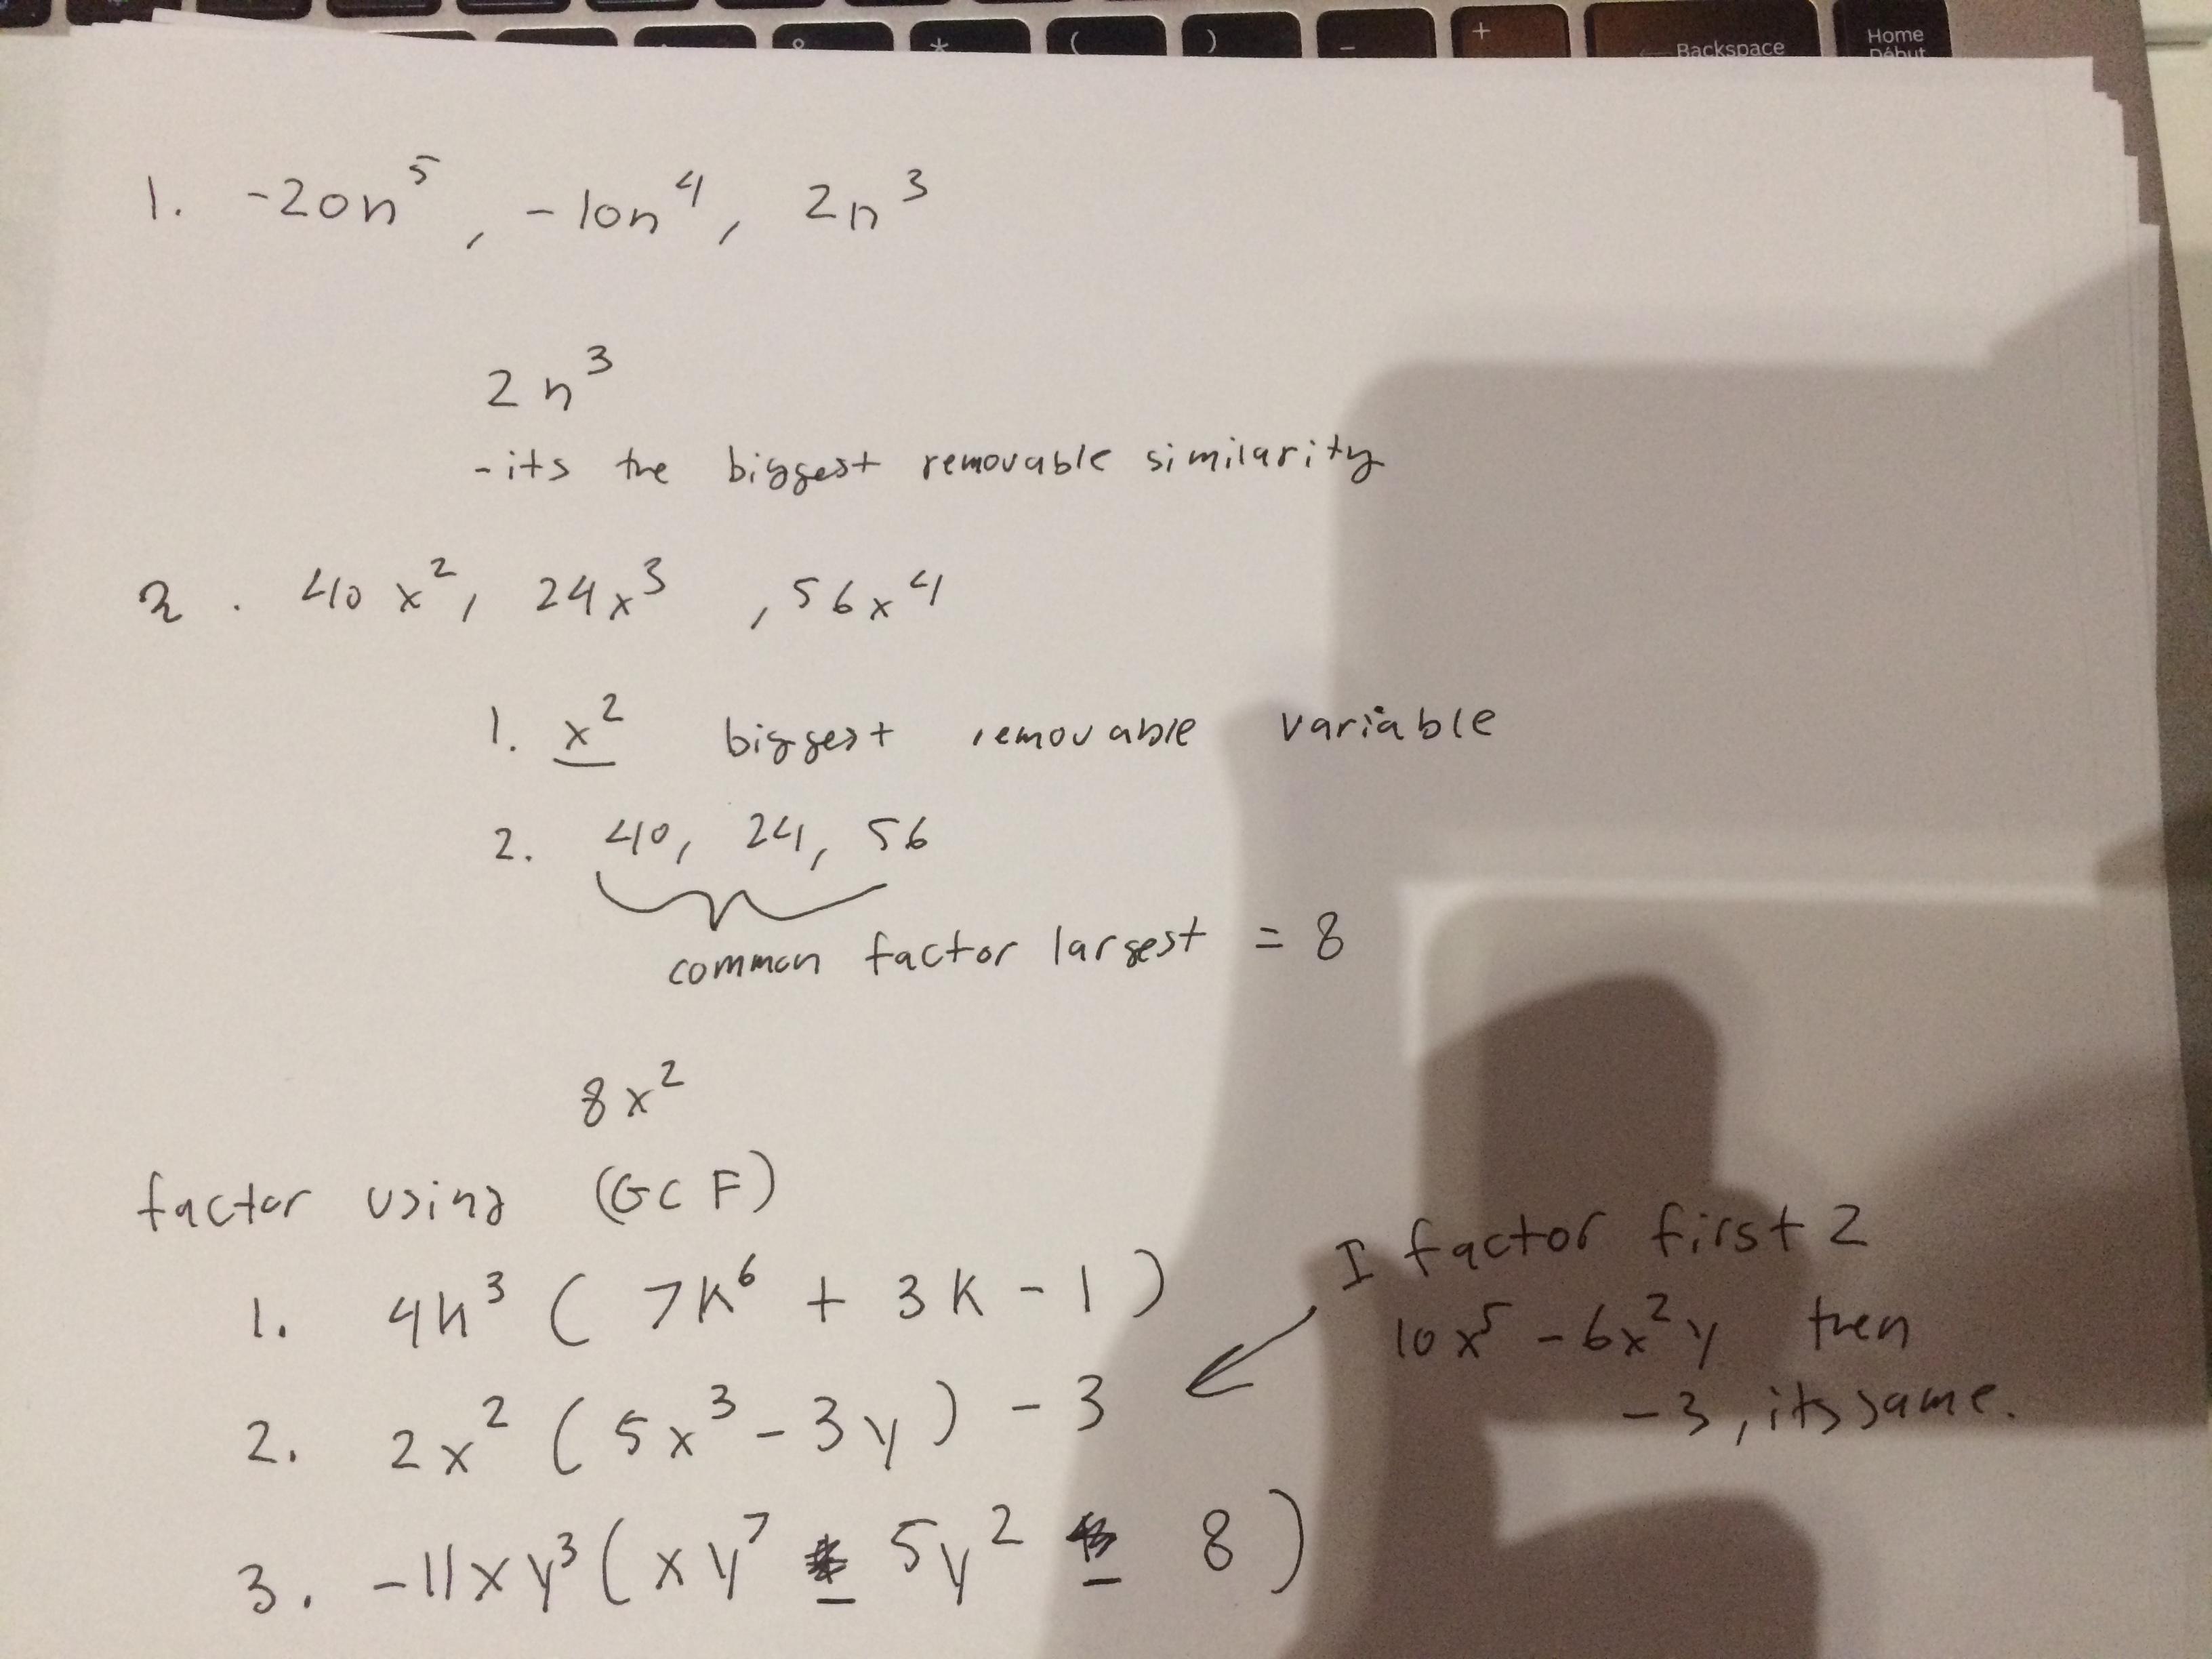 & * ( ) - + ← Backspace Home
Début
1. -20n⁵, -10n⁴, 2n³
2n³
-its the biggest removable similarity
2. 40x², 24x³, 56x⁴
1. x² biggest removable variable
2. 40, 24, 56
common factor largest = 8
8x²
factor using (GCF)
1. 4k³ ( 7k⁶ + 3k - 1 )
2. 2x² ( 5x³ - 3y ) - 3
3. -11xy³ ( xy⁷ - 5y² - 8 )
I factor first 2
10x⁵ - 6x²y then
-3, its same.